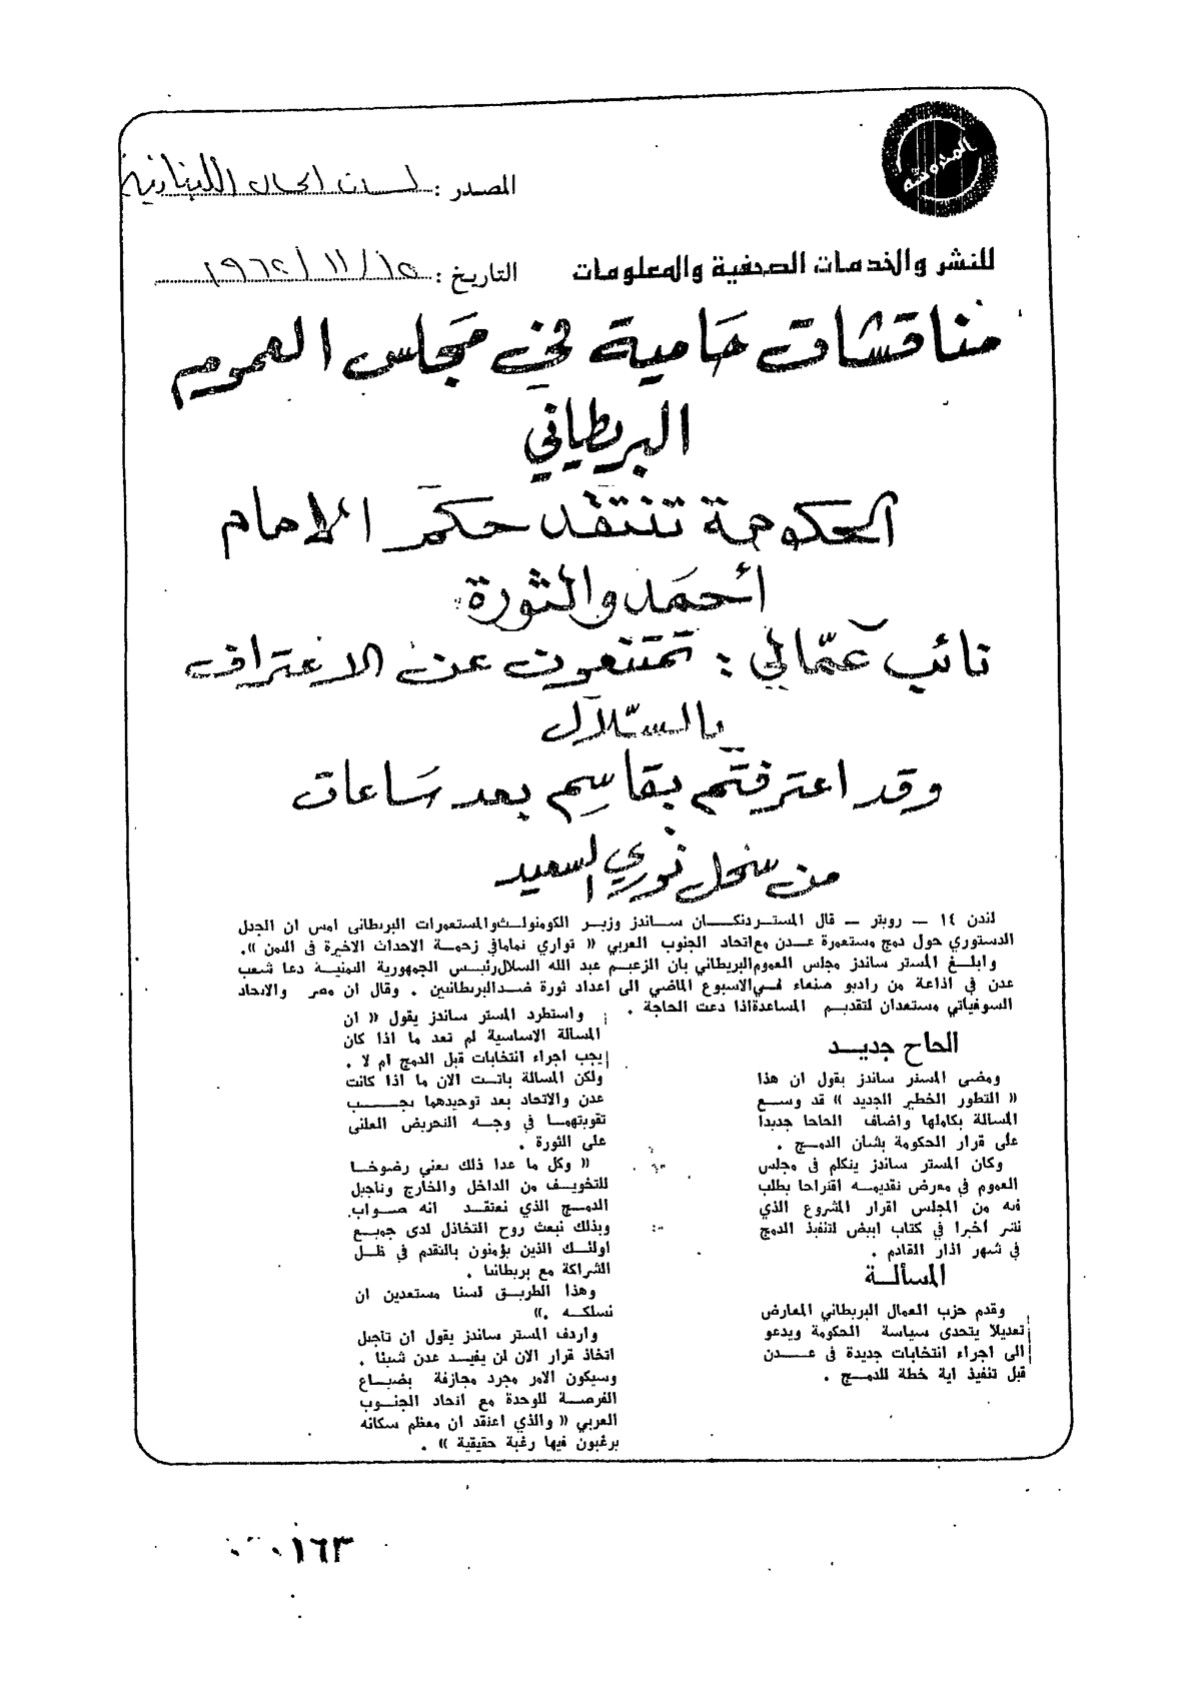 المدروسة
المصدر : لسان الحال اللبنانية
للنشر والخدمات الصحفية والمعلومات
التاريخ : ١٥/ ١١/ ١٩٦٢
مناقشات حامية في مجلس العموم
البريطاني
الحكومة تنتقد حكم الامام
أحمد والثورة
نائب عمّالي : تمتنعون عن الاعتراف
بالسّلال
وقد اعترفتم بقاسم بعد ساعات
من سحل نوري السعيد
لندن ١٤ — رويتر — قال المستر دنكان ساندز وزير الكومنولث والمستعمرات البريطاني امس ان الجدل
الدستوري حول دمج مستعمرة عدن مع اتحاد الجنوب العربي « تواري تماما في زحمة الاحداث الاخيرة في اليمن ».
وابلغ المستر ساندز مجلس العموم البريطاني بان الزعيم عبد الله السلال رئيس الجمهورية اليمنية دعا شعب
عدن في اذاعة من راديو صنعاء في الاسبوع الماضي الى اعداد ثورة ضد البريطانيين . وقال ان مصر والاتحاد
السوفياتي مستعدان لتقديم المساعدة اذا دعت الحاجة .
الحاح جديد
ومضى المستر ساندز يقول ان هذا
« التطور الخطير الجديد » قد وسع
المسالة بكاملها واضاف الحاحا جديدا
على قرار الحكومة بشأن الدمج .
وكان المستر ساندز يتكلم في مجلس
العموم في معرض تقديمه اقتراحا يطلب
فيه من المجلس اقرار المشروع الذي
نشر اخيرا في كتاب ابيض لتنفيذ الدمج
في شهر اذار القادم .
المسألة
وقدم حزب العمال البريطاني المعارض
تعديلا يتحدى سياسة الحكومة ويدعو
الى اجراء انتخابات جديدة في عدن
قبل تنفيذ اية خطة للدمج .
واستطرد المستر ساندز يقول « ان
المسالة الاساسية لم تعد ما اذا كان
يجب اجراء انتخابات قبل الدمج ام لا .
ولكن المسالة باتت الان ما اذا كانت
عدن والاتحاد بعد توحيدهما يجب
تقويتهما في وجه التحريض العلني
على الثورة .
« وكل ما عدا ذلك يعني رضوخا
للتخويف من الداخل والخارج وتاجيل
الدمج الذي نعتقد انه صواب.
وبذلك نبعث روح التخاذل لدى جميع
اولئك الذين يؤمنون بالتقدم في ظل
الشراكة مع بريطانيا .
وهذا الطريق لسنا مستعدين ان
نسلكه .»
واردف المستر ساندز يقول ان تاجيل
اتخاذ قرار الان لن يفيد عدن شيئا .
وسيكون الامر مجرد مجازفة بضياع
الفرصة للوحدة مع اتحاد الجنوب
العربي « والذي اعتقد ان معظم سكانه
يرغبون فيها رغبة حقيقية » .
١٦٣